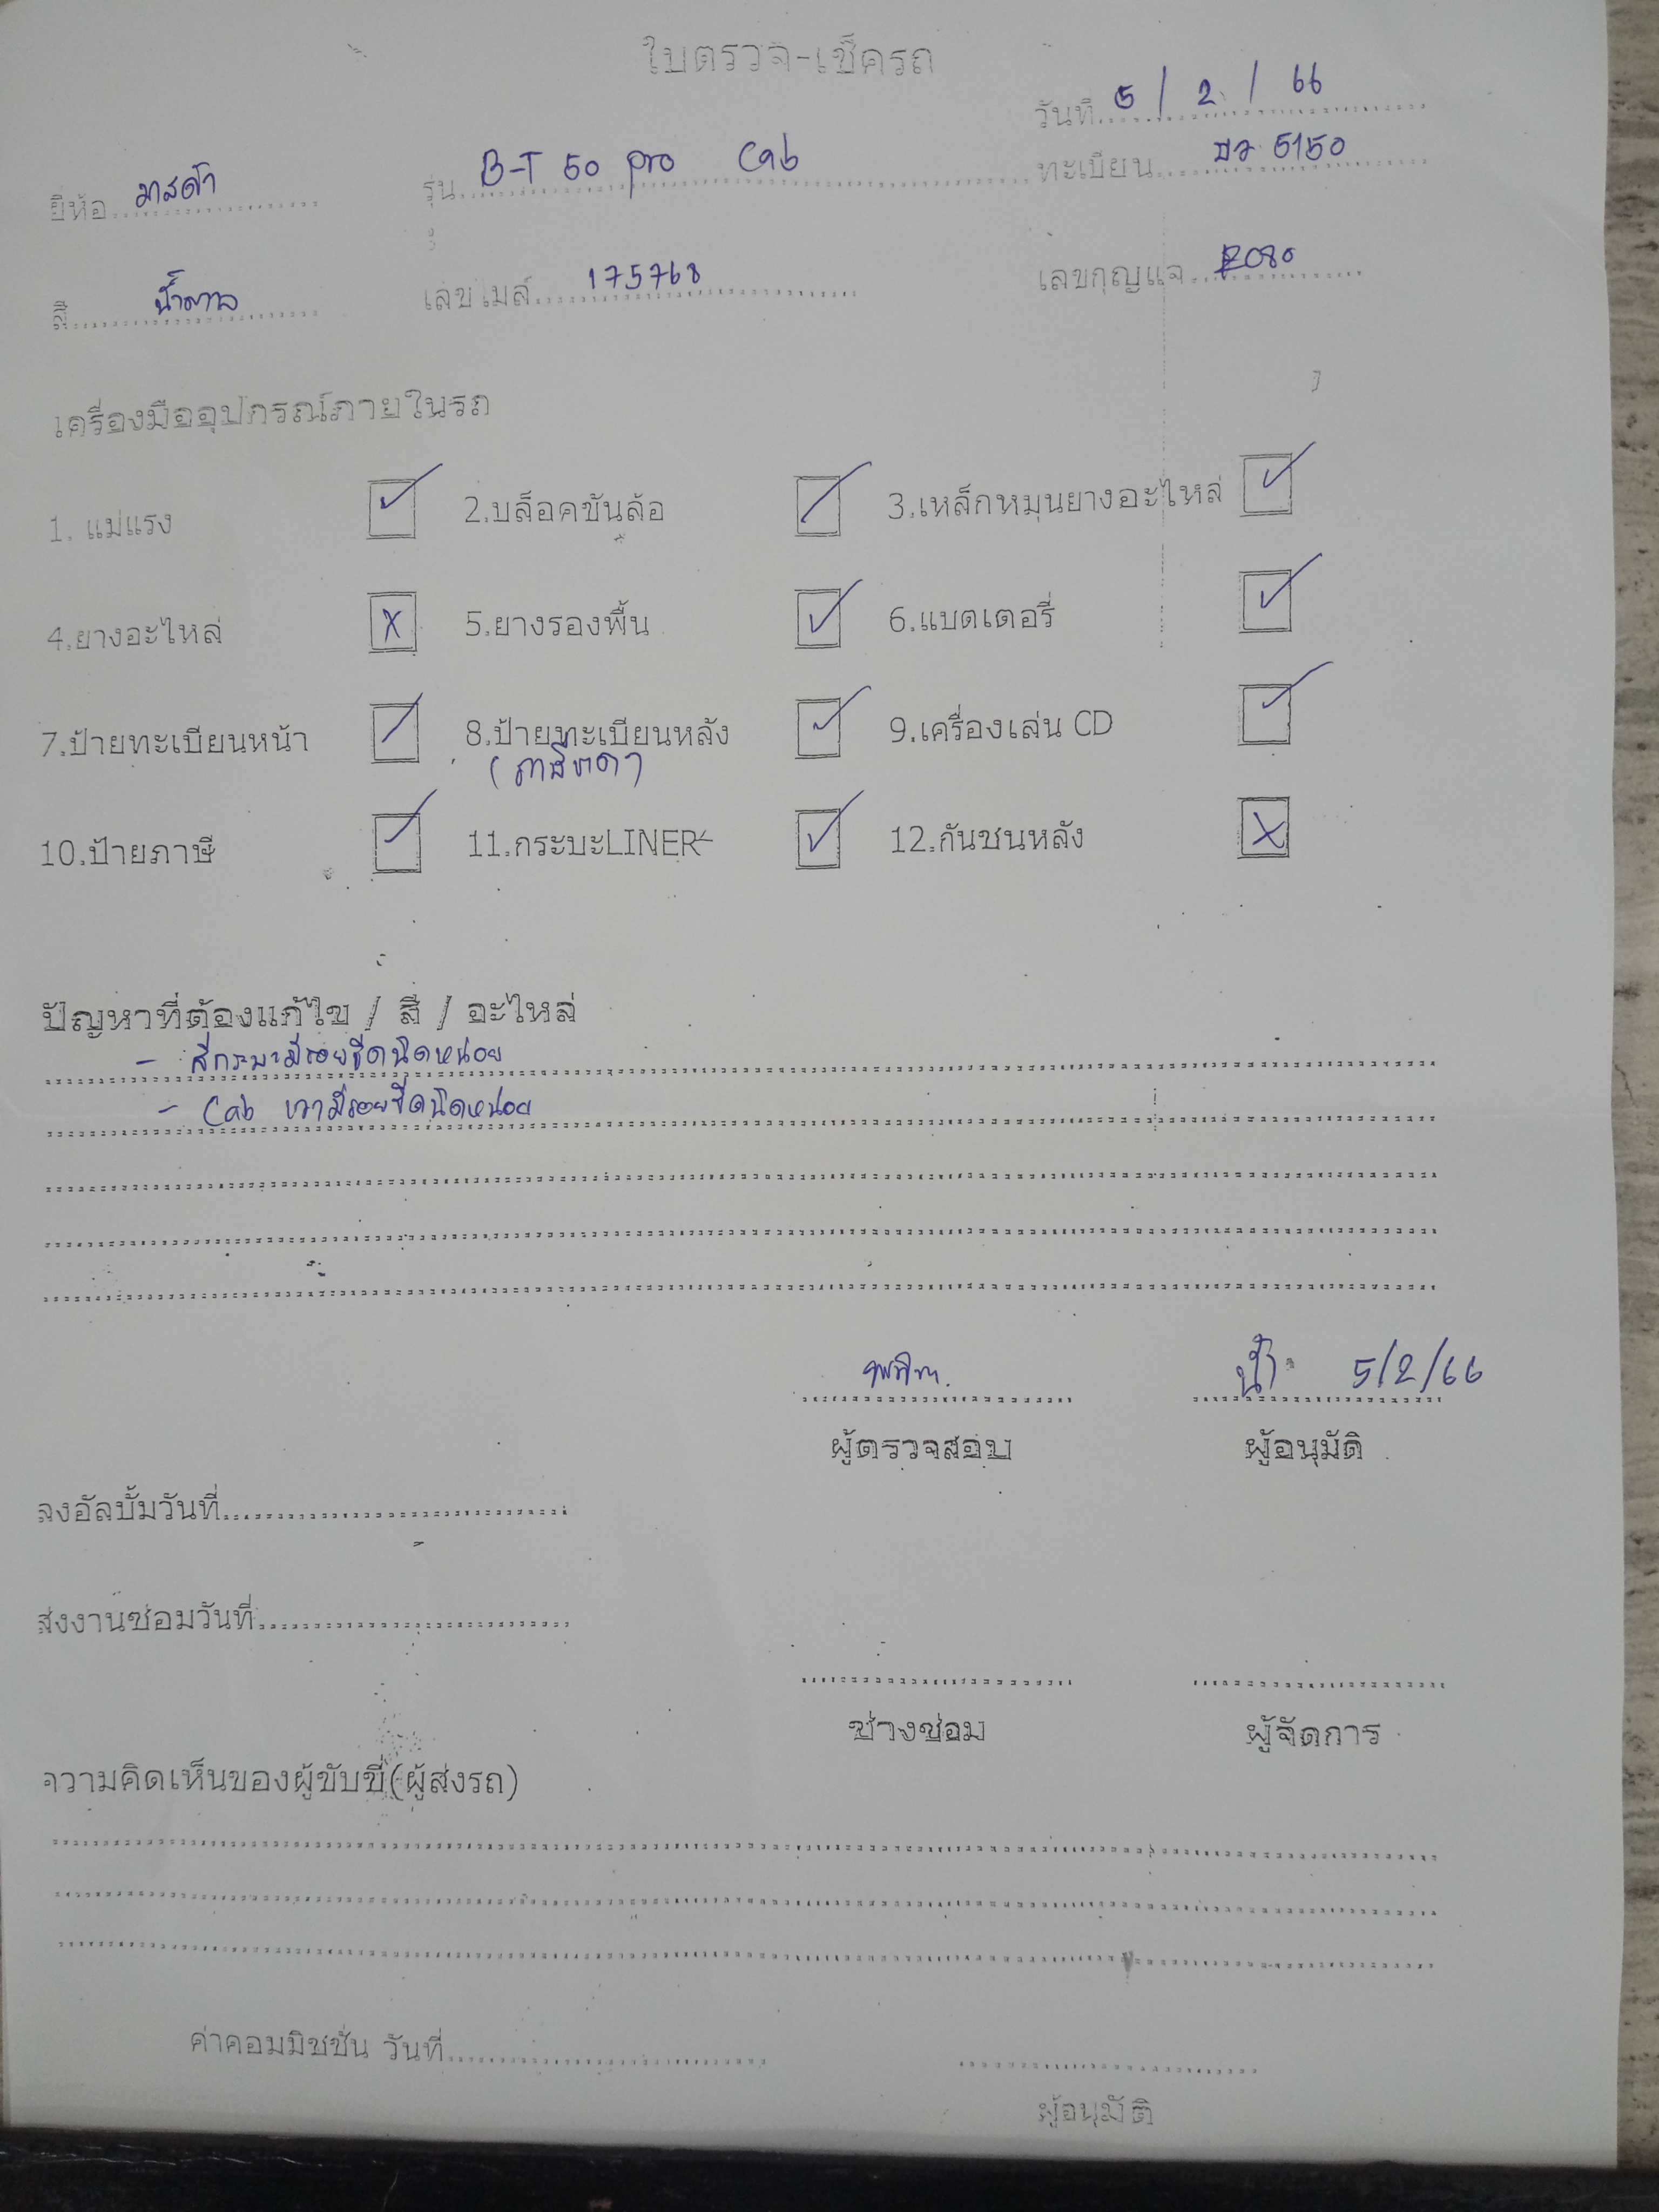 ใบตรวจ-เช็ครถ
วันที่ 5 / 2 / 66
ยี่ห้อ มาสด้า รุ่น B-T 50 pro Cab ทะเบียน บว 5150
สี น้ำตาล เลขไมล์ 175768 เลขกุญแจ 2080
เครื่องมืออุปกรณ์ภายในรถ
1. แม่แรง ✓ 2.บล็อคขันล้อ / 3.เหล็กหมุนยางอะไหล่ ✓
4.ยางอะไหล่ X 5.ยางรองพื้น ✓ 6.แบตเตอรี่ ✓
7.ป้ายทะเบียนหน้า / 8.ป้ายทะเบียนหลัง ✓ 9.เครื่องเล่น CD ✓
(ภาษีขาด)
10.ป้ายภาษี ✓ 11.กระบะLINER ✓ 12.กันชนหลัง X
ปัญหาที่ต้องแก้ไข / สี / อะไหล่
- สีกระบะมีรอยขีดนิดหน่อย
- Cab ขวามีรอยขีดนิดหน่อย
5/2/66
ผู้ตรวจสอบ ผู้อนุมัติ
ลงอัลบั้มวันที่
ส่งงานซ่อมวันที่
ช่างซ่อม ผู้จัดการ
ความคิดเห็นของผู้ขับขี่(ผู้ส่งรถ)
ค่าคอมมิชชั่น วันที่
ผู้อนุมัติ